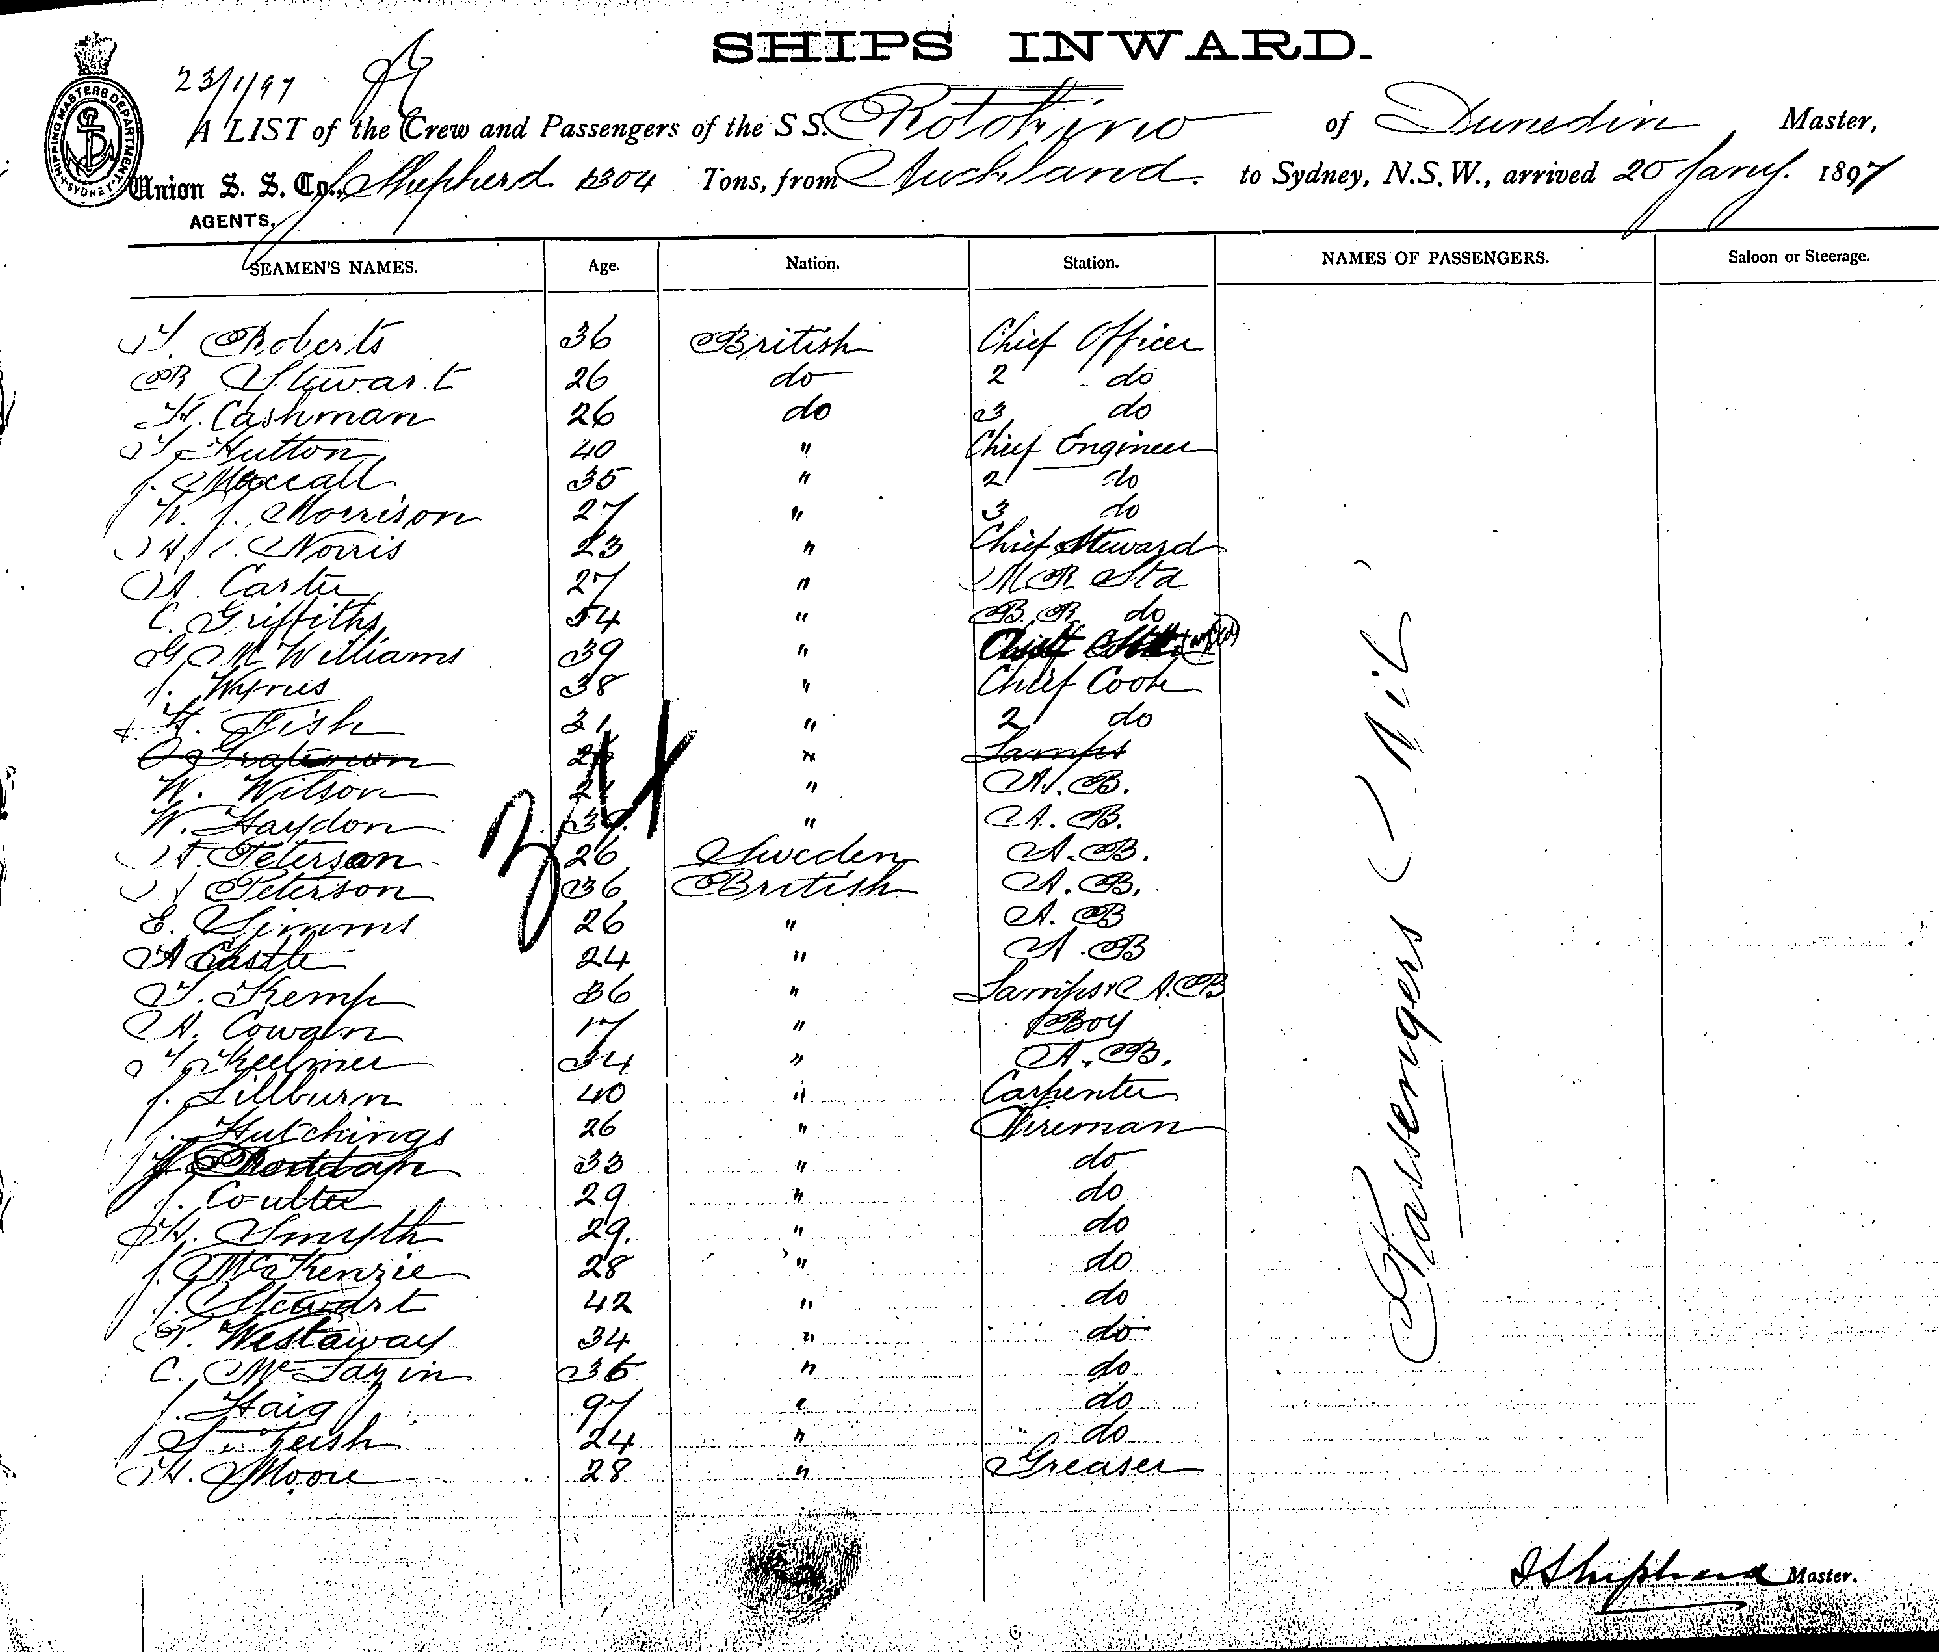 SHIPS INWARD.
23/1/97
SHIPPING MASTERS DEPARTMENT SYDNEY
A LIST of the Crew and Passengers of the S.S. Rotokino of Dunedin Master,
Union S. S. Co., J. Shepherd 1304 Tons, from Auckland. to Sydney, N.S.W., arrived 20 Jany. 1897
AGENTS,
SEAMEN'S NAMES. Age. Nation. Station. NAMES OF PASSENGERS. Saloon or Steerage.
T. Roberts 36 British Chief Officer
R Stewart 26 do 2 do
H. Cashman 26 do 3 do
T. Hutton 40 " Chief Engineer
J. Maccall 35 " 2 do
W. J. Morrison 27 " 3 do
Norris 23 " Chief Steward
A. Carter 27 " M R Std
C. Griffiths 54 " B. R. do
G McWilliams 39 "
J. Wynis 38 " Chief Cook
H. Fish 31 " 2 do
" Lamps
W. Wilson 21 " A. B.
W. Haydon 39 " A. B.
A. Peterson 26 Sweden A. B.
A Peterson 36 British A. B.
E. Simms 26 " A. B
A Castle 24 " A B
T. Kemp 36 " Lamps & A. B
A. Cowan 17 " Boy
T. Keelmer 34 " A. B.
J. Lillburn 40 " Carpenter
J. Hutchings 26 " Fireman
33 " do
J. Coulter 29 " do
H. Smyth 29. " do
J. McKenzie 28 " do
J. Stewart 42 " do
T. Westaway 34 " do
C. McLazin 36 " do
J. Haig 97 " do
24 " do
H. Moore 28 " Greaser
34
Passengers Nil
J Shepherd Master.